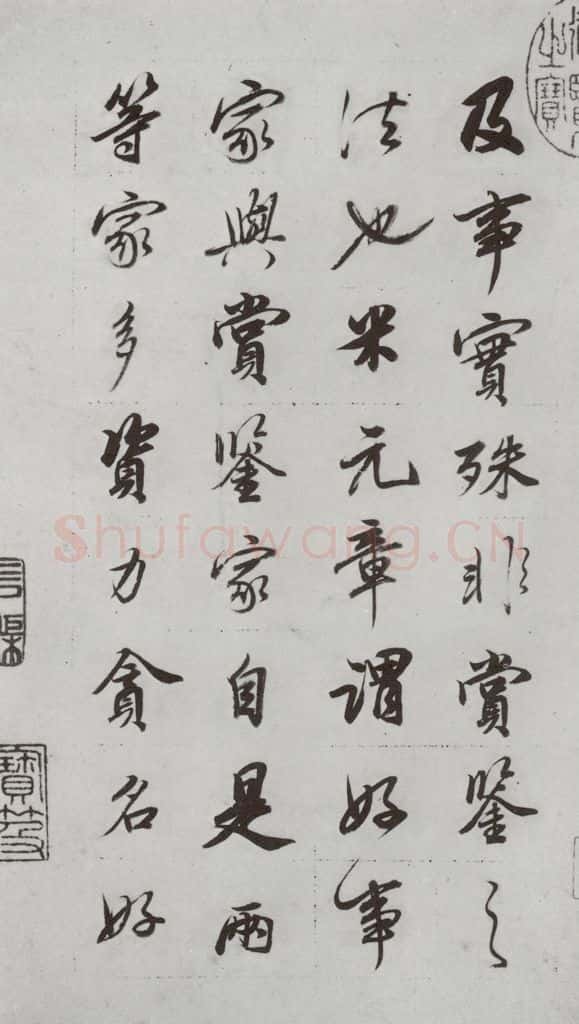 及事實殊非賞鑒之
法也米元章謂好事
家與賞鑒家自是兩
等家多資力貪名好
Shufawang.CN